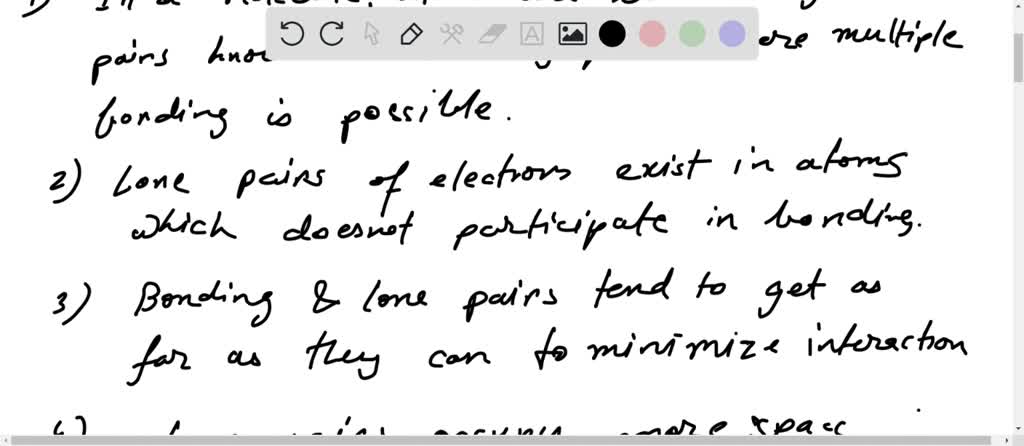 1) In a
pairs are multiple
bonding is possible.
2) Lone pairs of electrons exist in atoms
which doesnot participate in bonding.
3) Bonding & lone pairs tend to get as
far as they can to minimize interaction
more space